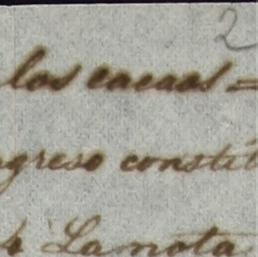 2
los cacaos =
ngreso constit
La nota